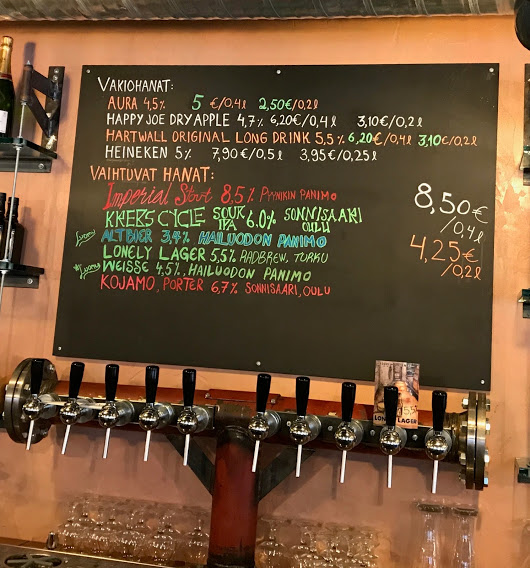 VAKIOHANAT:
AURA 4,5% 5 €/0,4l 2,50€/0,2l
HAPPY JOE DRY APPLE 4,7% 6,20€/0,4l 3,10€/0,2l
HARTWALL ORIGINAL LONG DRINK 5,5% 6,20€/0,4l 3,10€/0,2l
HEINEKEN 5% 7,90€/0,5l 3,95€/0,25l
VAIHTUVAT HANAT:
Imperial Stout 8,5% PYYNIKIN PANIMO
SOUR IPA 6.0% SONNISAARI OULU
Luomu ALTBIER 3,4% HAILUODON PANIMO
LONELY LAGER 5,5% RADBREW, TURKU
*Luomu WEISSE 4,5%, HAILUODON PANIMO
KOJAMO, PORTER 6,7% SONNISAARI, OULU
8,50€
/0,4l
4,25€
/0,2l
LAGER